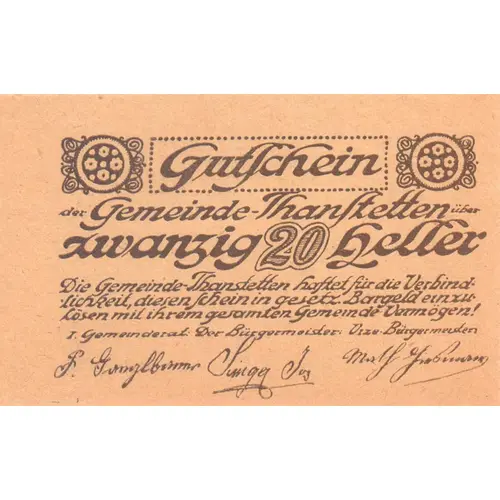 Gutschein
der Gemeinde-Thanstetten über
zwanzig 20 Heller
Die Gemeinde-Thanstetten haftet für die Verbind-
lichkeit, diesen Schein in gesetz. Bargeld einzu-
lösen mit ihrem gesamten Gemeinde-Vermögen!
I. Gemeinderat: Der Bürgermeister: Vize-Bürgermeister